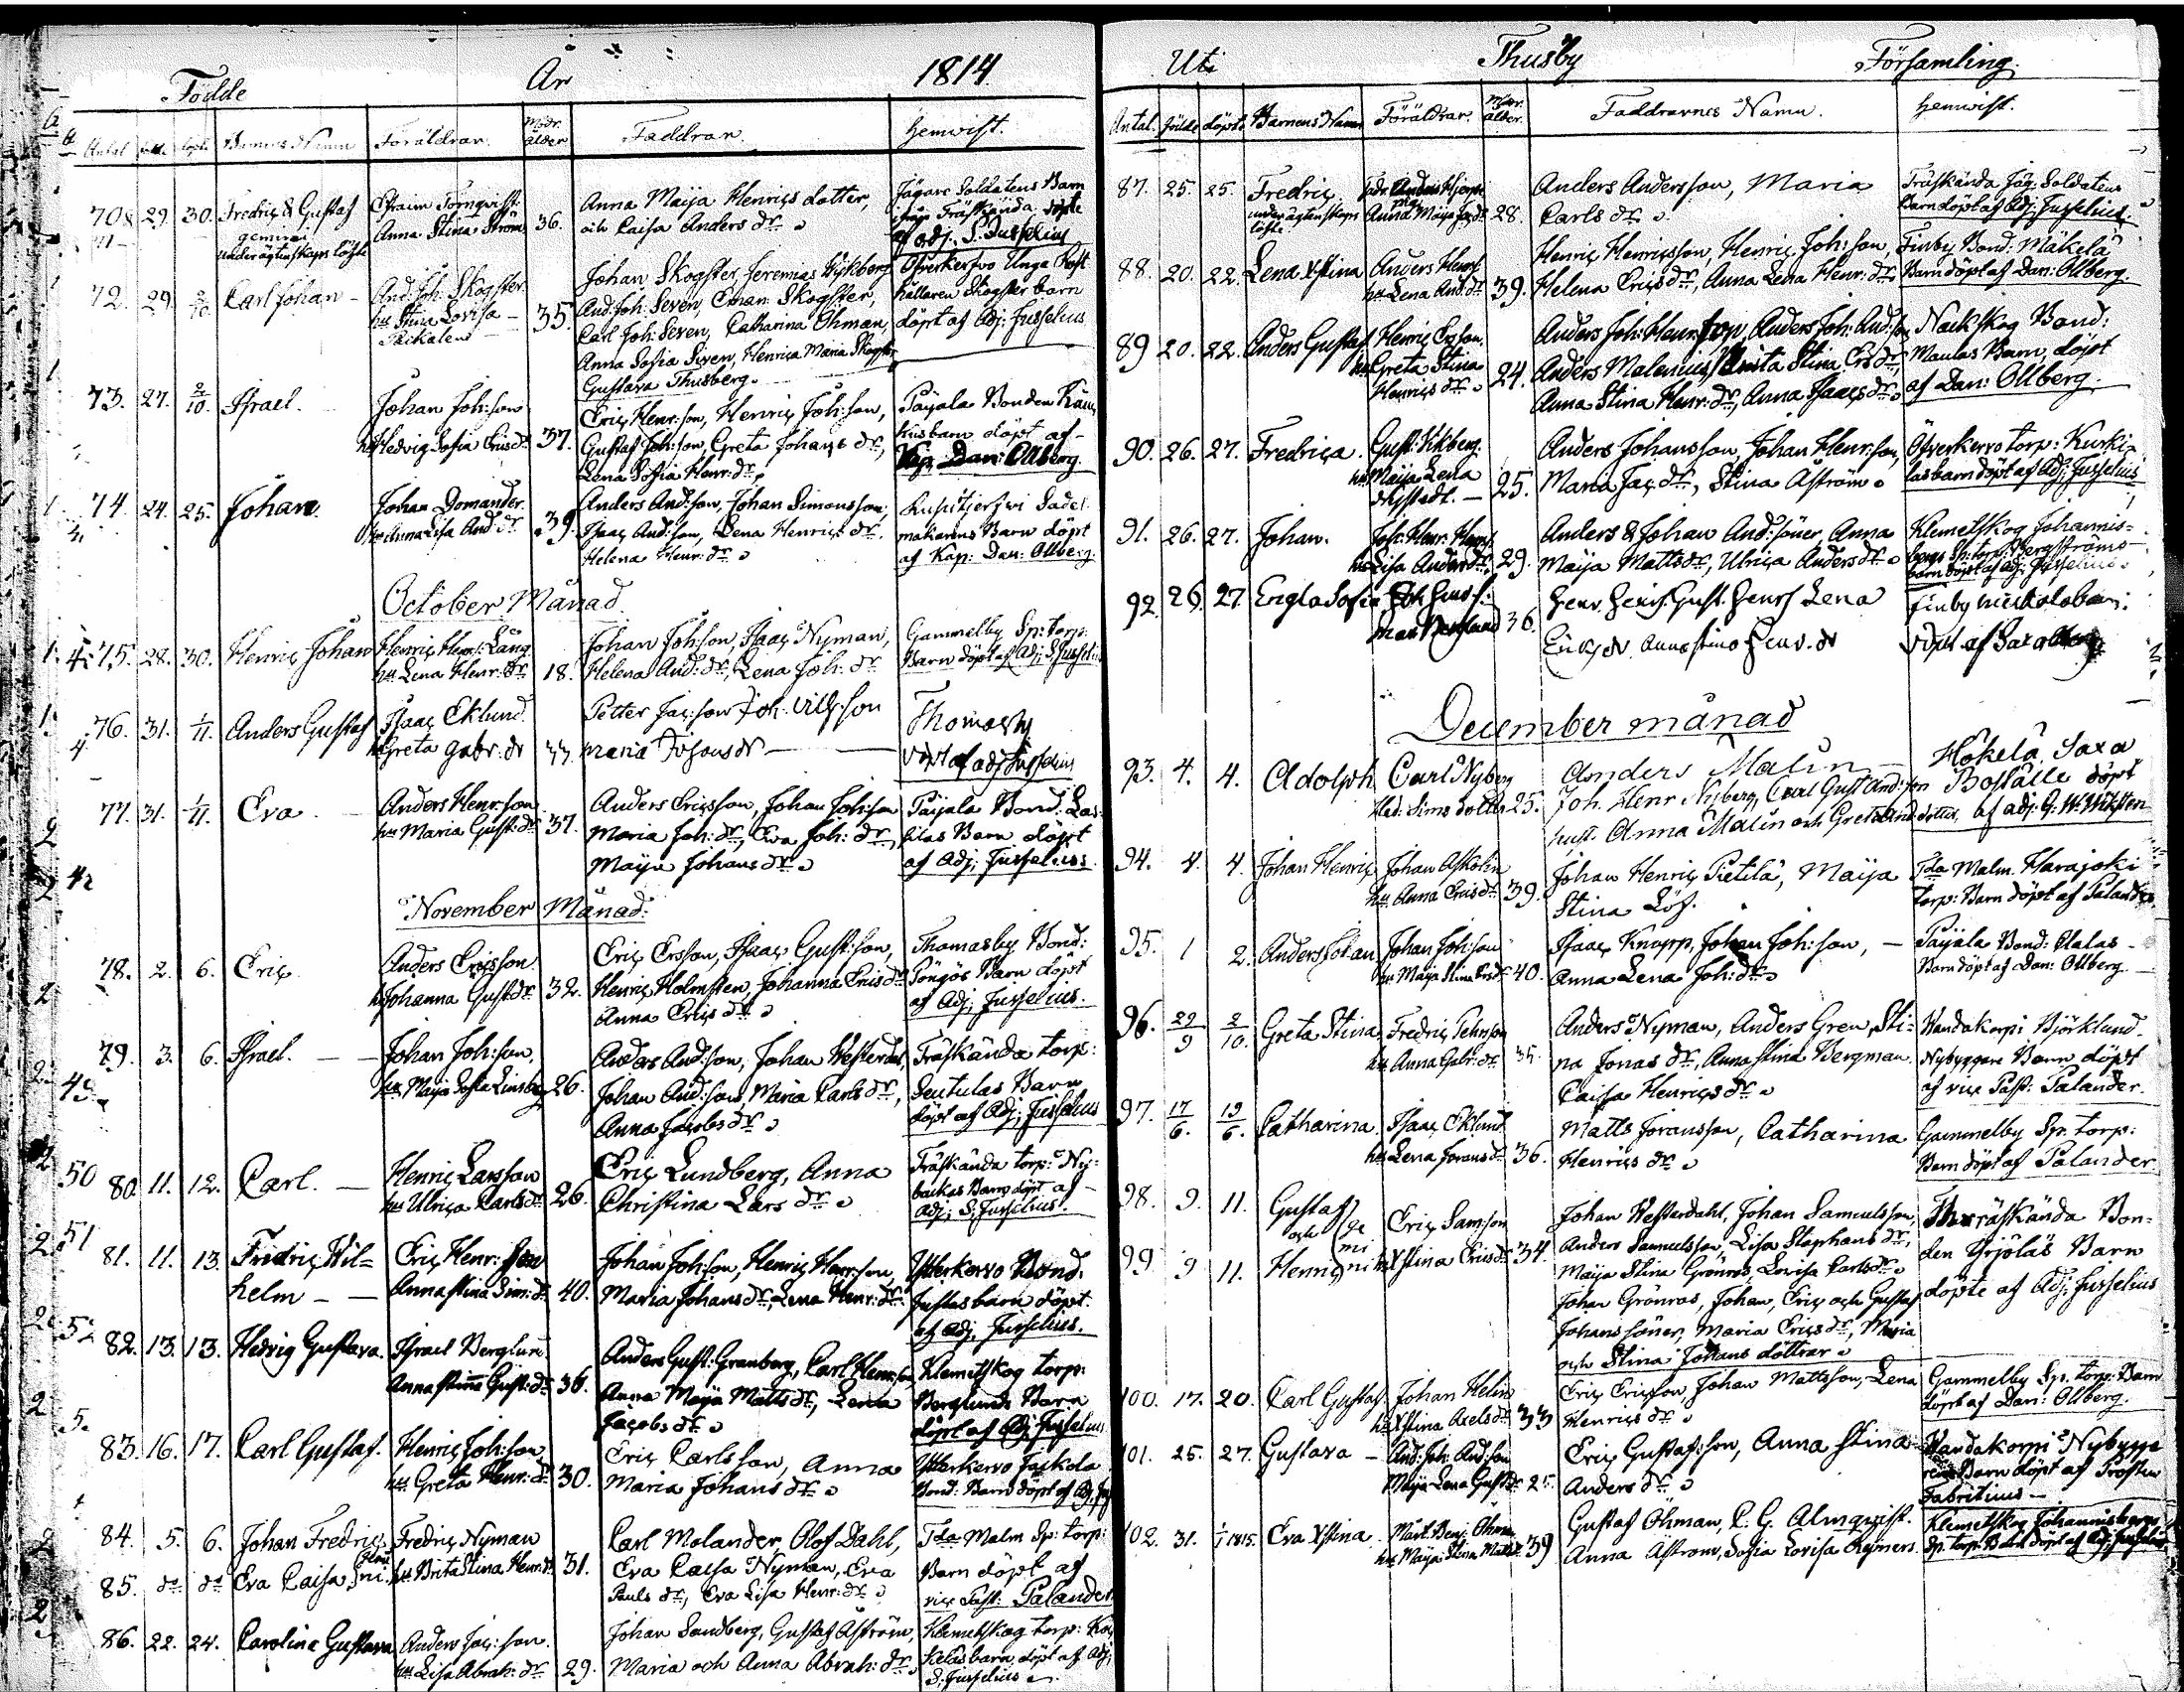 Födde År 1814.
Antal födde döpte Barnens Namn Föräldrar. Modr. ålder Faddrar. Hemvist.
70 & 71 29. 30. Fredric & Gustaf Efraim Törnqvist Anna Maija Henrics dotter, Jägare Soldatens Barn
gemini Anna Stina Ström 36. och Caisa Anders dr från Träskända döpte
under ägtenskaps löfte af adj. S. Jusselius
72. 29. 2/10 Carl Johan And. Joh: Skogster Johan Skogster, Jeremias Öfverkervo Unga
hu Stina Lovisa 35. And. Joh. Seven, Eman. Skogster, hållaren Skogster barn
Carl Joh: Seven, Catharina Öhman, döpt af Adj: Jusselius
Anna Sofia Siven, Henrica Maria Skogster
Gustava Thusberg.
73. 27. 2/10 Israel. Johan Joh:son Eric Henr:son, Henric Joh:son, Paijala Bonden
hu Hedvig Sofia Ericsdr 37. Gustaf Joh:son, Greta Johans dr, barn döpt af
Lena Sofia Henr: dr Kap. Dan: Ollberg
74. 24. 25. Johan. Johan Domander Anders And:son, Johan Simonsson, Sadel
hu Anna Lisa And dr 39. Isaac And:son, Lena Henrics dr. makarens Barn döpt
Helena Henr: dr af Kap: Dan: Ollberg.
October Månad.
75. 28. 30. Henric Johan Henric Henr: Lång Johan Joh:son, Isaac Nyman, Gammelby Sp: torp:
hu Lena Henr: dr 18. Helena And: dr, Lena Joh: dr Barn döpt af Adj: S Jusselius
76. 31. 1/11. Anders Gustaf Isaac Eklund Petter Jac:son Joh. Thomasby
hu Greta Gabr. dr 33. Maria Johans dr döpt af adj Jusselius
77. 31. 1/11. Eva Anders Henr:son Anders Ericsson, Johan Joh:son Paijala Bond:
hu Maria Gust: dr 37. Maria Joh: dr, Eva Joh: dr, Barn döpt
Maija Johans dr af Adj; Jusselius.
November Månad.
78. 2. 6. Eric Anders Ericsson Eric Ersson, Isaac Gust:son, Thomasby Bond:
hu Johanna Gust dr 32. Henric Holmsten, Johanna Erics dr Pöngös Barn döpt
Anna Erics dr af Adj; Jusselius.
79. 3. 6. Israel. Johan Joh:son, Anders And:son, Johan Westerdal, Träskända torp:
hu Maija Sofia Linsberg 26. Johan And:son, Maria Carls dr, Seutulas Barn
Anna Jacobs dr döpt af Adj; Jusselius
80. 11. 12. Carl. Henric Larsson Eric Lundberg, Anna Träskända torp: Ny-
hu Ulrica Carls dr 26. Christina Lars dr backas Barn döpt af
Adj; S; Jusselius.
81. 11. 13. Fredric Wil= Eric Henr: son Johan Joh:son, Henric Henr:son, Ytterkervo Bond:
helm Anna Stina Sim: dr 40. Maria Johans dr, Lena Henr: dr Justas barn döpt
af Adj, Jusselius.
82. 13. 13. Hedvig Gustava. Israel Berglund Anders Gust: Granberg, Carl Henr:son Klemetskog torp:
Anna Stina Gust: dr 36. Anna Maija Matts dr, Lena Berglunds Barn
Jacobs dr döpt af Adj Jusselius
83. 16. 17. Carl Gustaf. Henric Joh:son Eric Carlsson, Anna Ytterkervo Jackola
hu Greta Henr: dr 30. Maria Johans dr Bond: Barn döpt af Adj
84. 5. 6. Johan Fredric Fredric Nyman Carl Molander, Olof Dahl, Tda Malm Sp: torp:
85. do do Eva Caisa hu Brita Stina Henr: dr 31. Eva Caisa Nyman, Eva Barn döpt af
Pauls dr, Eva Lisa Henr: dr vic Past: Palander.
86. 22. 24. Carolina Gustava Anders Jac:son Johan Sandberg, Gustaf Åström, Klemetskog torp:
hu Lisa Abrah: dr 29. Maria och Anna Abrah: dr barn döpt af Adj;
S; Jusselius
Uti Thusby Församling.
Antal. födde döpte Barnens Namn Föräldrar. Modr. ålder. Faddrarnes Namn. Hemvist.
87. 25. 25. Fredric Anders Anders Andersson, Maria Träskända Jäg: Soldatens
under ägtenskaps löfte Anna Maija 28. Carls dr Barn döpt af Adj: Jusselius.
88. 20. 22. Lena Xstina Anders Henr: Henric Henricsson, Henric Joh:son Finby Bond: Mäkelä
hu Lena And. dr 39. Helena Erics dr, Anna Lena Henr: dr Barn döpt af Dan: Ollberg.
89 20. 22. Anders Gustaf Henric Ersson Anders Joh: Henr:son, Anders Joh: And:son Nackskog Bond:
hu Greta Stina 24. Anders Malenius, Anita Stina Ers dr, Maulas Barn, döpt
Henrics dr Anna Stina Henr: dr, Anna Isaacs dr af Dan: Ollberg.
90. 26. 27. Fredrica Gust: Anders Johansson, Johan Henr:son, Öfverkervo torp: Kurki-
hu Maija Lena 25. Maria Jac dr, Stina Åström las barn döpt af Adj; Jusselius
91. 26. 27. Johan. Joh: Henr: Anders & Johan And:söner, Anna Klemetskog Johannis=
hu Lisa Anders dr 29. Maija Matts dr, Ulrica Anders dr bergs Sp: torp: Bergströms
barn döpt af Adj; Jusselius
92. 26. 27. Sofia 36. Henr. Henrs. Gust. Henrs Lena Finby
Erics dr Anna Stina Henr. dr döpt af
December månad
93. 4. 4. Adolph Carl Nyberg Anders Malin Hökelä Saxa
Hed: Sims dotter 25. Joh. Henr Nyberg, Carl Gust And:son Boställe döpt
hust. Anna Malin och Greta And dotter, af adj. G. W.
94. 4. 4. Johan Henric Johan Askolin Johan Henric Pietilä, Maija Tda Malm. Harajoki
hu Anna Erics dr 39. Stina Löf. torp: Barn döpt af Palander
95. 1 2. Anders Johan Johan Joh:son Isaac Knapp, Johan Joh:son, Paijala Bond: Alalas
hu Maija Stina Ers dr 40. Anna Lena Joh: dr Barn döpt af Dan: Ollberg.
96. 29/9 2/10. Greta Stina Fredric Anders Nyman, Anders Gren, Sti= Wandakorpi Björklund
hu Anna Gabr: dr 35. na Jonas dr, Anna Stina Bergman Nybyggare Barn döpt
Caisa Henrics dr af vice Past: Palander.
97. 17/6. 19/6. Catharina Isaac Eklund Matts Joransson, Catharina Gammelby Sp. torp:
hu Lena Jorans dr 36. Henrics dr Barn döpt af Palander
98. 9. 11. Gustaf Eric Samson Johan Westerdahl, Johan Samuelsson, Träskända Bon-
och gemini Anders Samuelsson, Lisa Staphans dr,
99 9 11. Henric hu Xstina Erics dr 34. Maija Stina Grönros, Lovisa Carls dr den Yrjöläs Barn
Johan Grönros, Johan, Eric och Gustaf döpte af Adj; Jusselius
Johans söner, Maria Erics dr, Maria
och Stina Johans döttrar
100. 17. 20. Carl Gustaf Johan Helin Eric Ericsson, Johan Mattsson, Lena Gammelby Sp. torp: Barn
hu Xstina Axels dr 33 Henrics dr döpt af Dan: Olberg.
101. 25. 27. Gustava And: Joh: And:son Eric Gustaf:son, Anna Stina Wandakorpi Nybygge
Maija Lena Gust dr 25 Anders dr Barn döpt af Prosten
Fabritius
102. 31. 1/1 1815. Eva Xstina Märt. Benj. Öhman Gustaf Öhman, C. G. Almqvist. Klemetskog Johannisbergs
hu Maija Stina Matts dr 39 Anna Åström, Sofia Lovisa Reiners. Sp. torp. Barn döpt af Adj: Jusselius